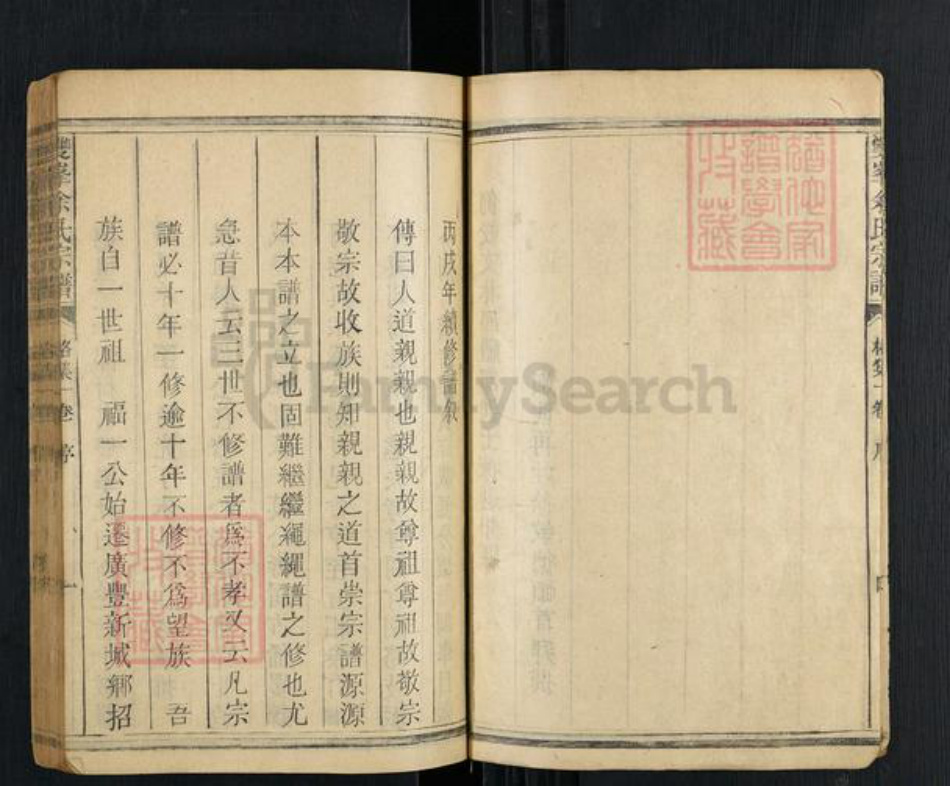 雙峯余氏宗譜
卷
序
丙戌年續修譜敘
傳曰人道親親也親親故尊祖尊祖故敬宗
敬宗故收族則知親親之道首崇宗譜源源
本本譜之立也固難繼繼繩繩譜之修也尤
急昔人云三世不修譜者爲不孝又云凡宗
譜必十年一修逾十年不修不爲望族 吾
族自一世祖 福一公始遷廣豐新城鄉招
雙峯余氏宗譜
卷 序 一
譜學會
收藏
FamilySearch